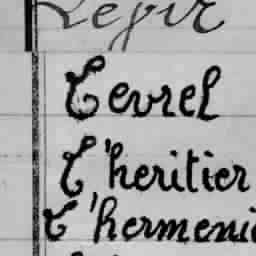 Levrel
L'heritier
L'hermeni